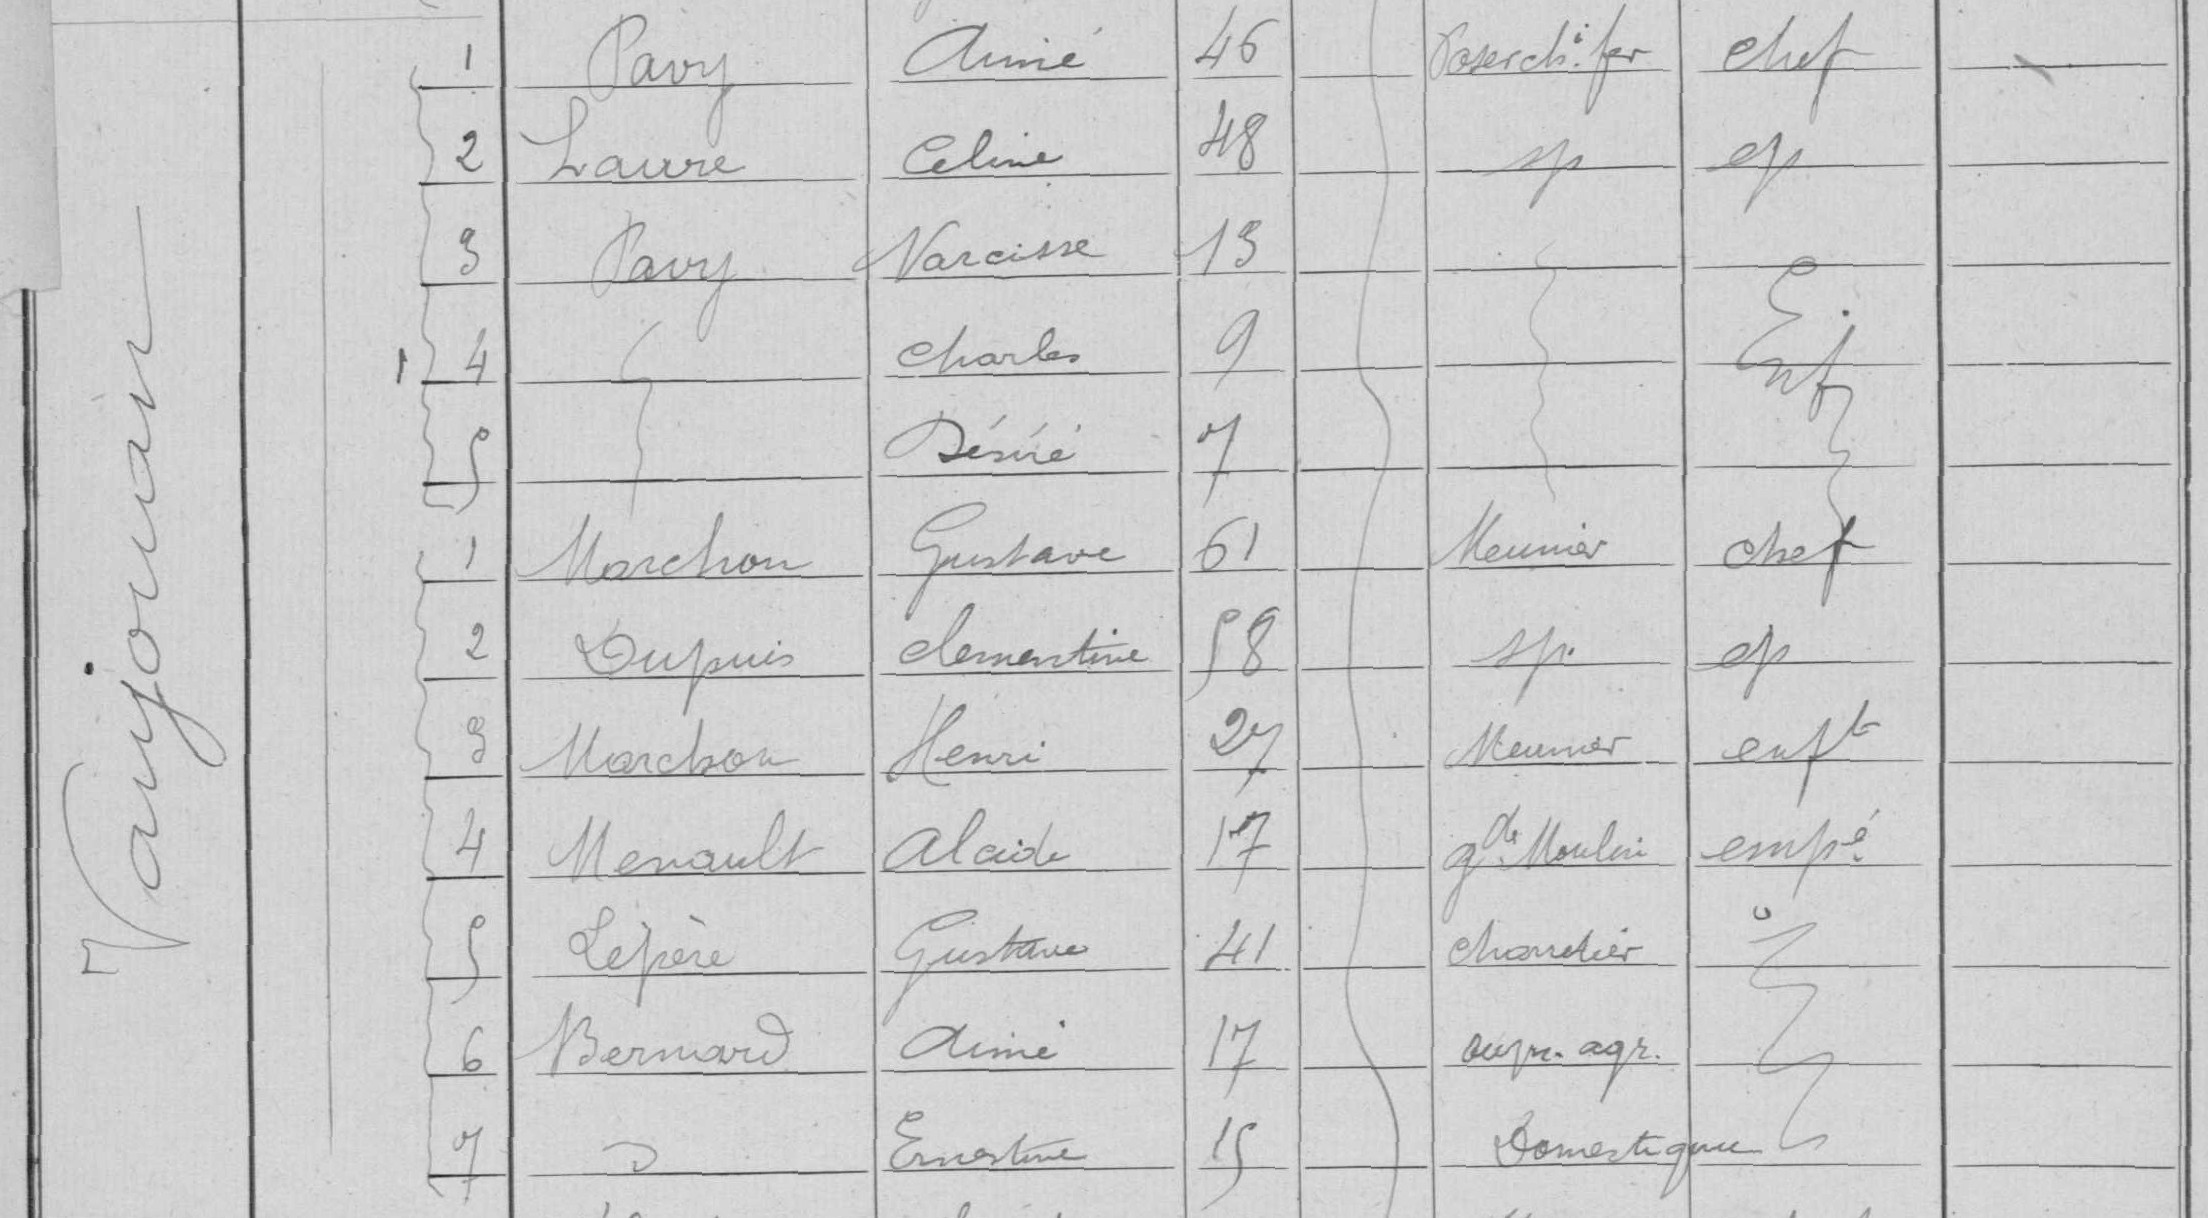 Vaujouan
1 Pavy Aimé 46 Poser ch. fer chef
2 Laure Celine 48 sp ep
3 Pavy Narcisse 13
1 4 Charles 9 Enf
5 Désiré 7
1 Marchon Gustave 61 Meunier chef
2 Dupuis Clementine 58 sp. ep
3 Marchon Henri 27 Meunier enft
4 Menault Alcide 17 gde Moulin empé
5 Lepère Gustave 41 Charretier
6 Bernard Aimé 17 ouvr. agr.
7 D Ernestine 15 Domestique